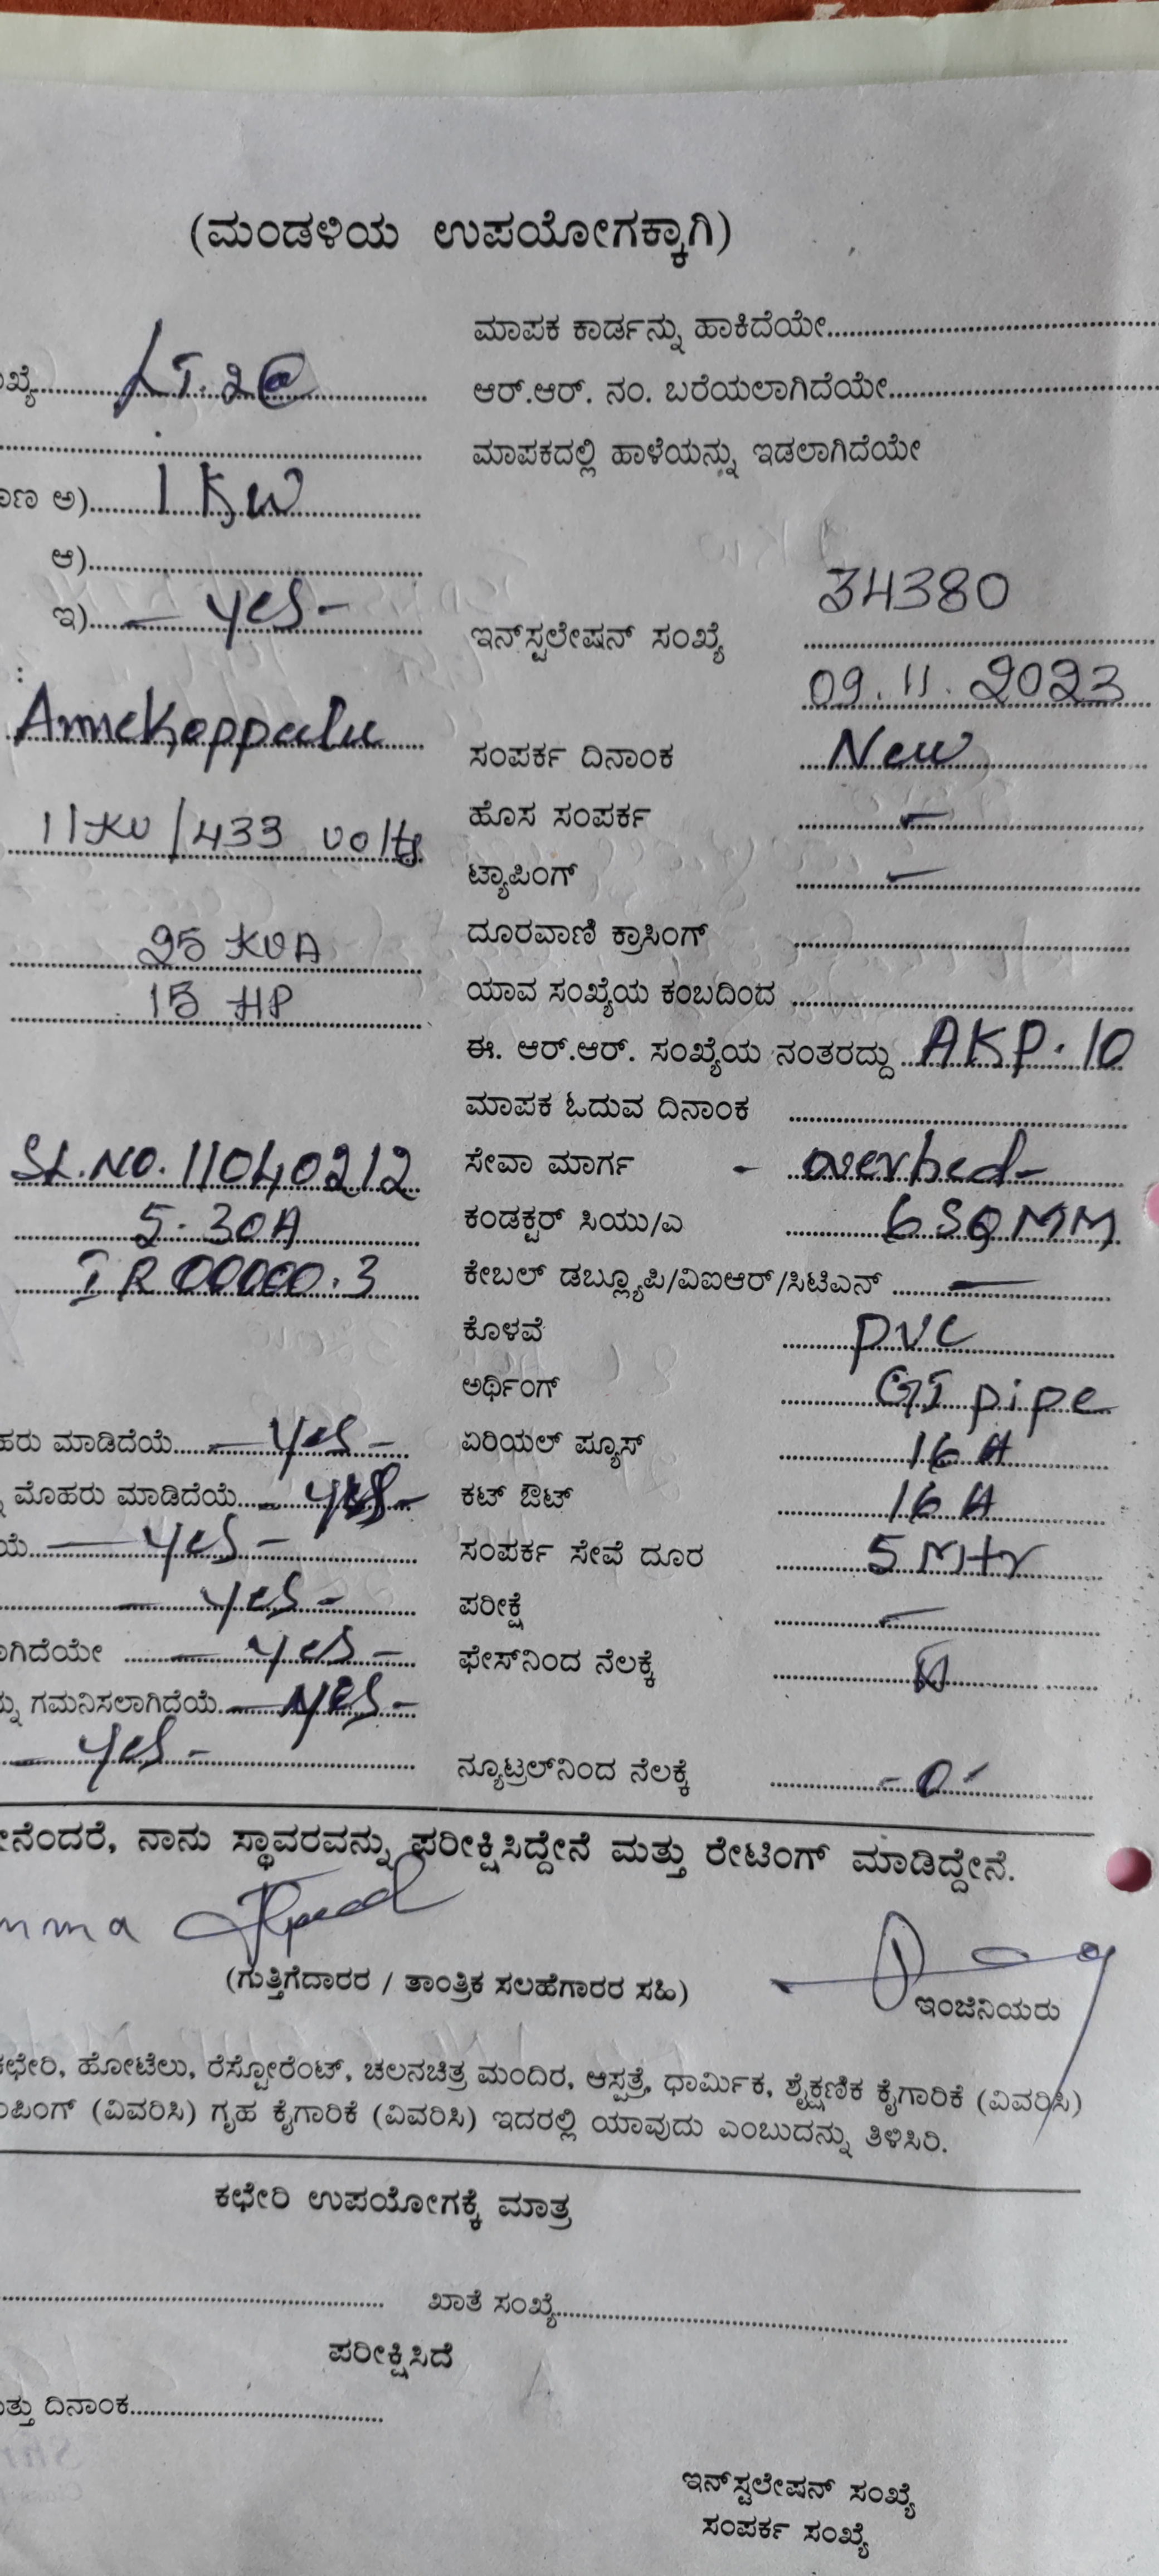 (ಮಂಡಳಿಯ ಉಪಯೋಗಕ್ಕಾಗಿ)
ಮಾಪಕ ಕಾರ್ಡನ್ನು ಹಾಕಿದೆಯೇ
LT.2@
ಆರ್.ಆರ್. ನಂ. ಬರೆಯಲಾಗಿದೆಯೇ
ಮಾಪಕದಲ್ಲಿ ಹಾಳೆಯನ್ನು ಇಡಲಾಗಿದೆಯೇ
ಅ) 1 KW
ಆ)
ಇ) - yes -
ಇನ್‌ಸ್ಟಲೇಷನ್ ಸಂಖ್ಯೆ 34380
09.11.2023
Annekoppalu
ಸಂಪರ್ಕ ದಿನಾಂಕ New
11 KV / 433 volts
ಹೊಸ ಸಂಪರ್ಕ -
ಟ್ಯಾಪಿಂಗ್ -
25 KVA ದೂರವಾಣಿ ಕ್ರಾಸಿಂಗ್
15 HP ಯಾವ ಸಂಖ್ಯೆಯ ಕಂಬದಿಂದ
ಈ. ಆರ್.ಆರ್. ಸಂಖ್ಯೆಯ ನಂತರದ್ದು AKP.10
ಮಾಪಕ ಓದುವ ದಿನಾಂಕ
SL.NO. 11040212 ಸೇವಾ ಮಾರ್ಗ - overhed -
5.30A ಕಂಡಕ್ಟರ್ ಸಿಯು/ಎ 6 SQ MM
IR 00000.3 ಕೇಬಲ್ ಡಬ್ಲ್ಯೂಪಿ/ವಿಐಆರ್/ಸಿಟಿಎನ್ -
ಕೊಳವೆ PVC
ಅರ್ಥಿಂಗ್ GI pipe
ಮಾಡಿದೆಯೆ - yes - ಏರಿಯಲ್ ಪ್ಯೂಸ್ 16 A
ಮೊಹರು ಮಾಡಿದೆಯೆ - yes - ಕಟ್ ಔಟ್ 16 A
- yes - ಸಂಪರ್ಕ ಸೇವೆ ದೂರ 5 Mtr
- yes - ಪರೀಕ್ಷೆ -
- yes - ಫೇಸ್‌ನಿಂದ ನೆಲಕ್ಕೆ
ಗಮನಿಸಲಾಗಿದೆಯೆ - yes -
- yes - ನ್ಯೂಟ್ರಲ್‌ನಿಂದ ನೆಲಕ್ಕೆ - 0 -
ನಾನು ಸ್ಥಾವರವನ್ನು ಪರೀಕ್ಷಿಸಿದ್ದೇನೆ ಮತ್ತು ರೇಟಿಂಗ್ ಮಾಡಿದ್ದೇನೆ.
(ಗುತ್ತಿಗೆದಾರರ / ತಾಂತ್ರಿಕ ಸಲಹೆಗಾರರ ಸಹಿ)
ಇಂಜಿನಿಯರು
ಹೋಟೆಲು, ರೆಸ್ಟೋರೆಂಟ್, ಚಲನಚಿತ್ರ ಮಂದಿರ, ಆಸ್ಪತ್ರೆ, ಧಾರ್ಮಿಕ, ಶೈಕ್ಷಣಿಕ ಕೈಗಾರಿಕೆ (ವಿವರಿಸಿ)
(ವಿವರಿಸಿ) ಗೃಹ ಕೈಗಾರಿಕೆ (ವಿವರಿಸಿ) ಇದರಲ್ಲಿ ಯಾವುದು ಎಂಬುದನ್ನು ತಿಳಿಸಿರಿ.
ಕಛೇರಿ ಉಪಯೋಗಕ್ಕೆ ಮಾತ್ರ
ಖಾತೆ ಸಂಖ್ಯೆ
ಪರೀಕ್ಷಿಸಿದೆ
ದಿನಾಂಕ
ಇನ್‌ಸ್ಟಲೇಷನ್ ಸಂಖ್ಯೆ
ಸಂಪರ್ಕ ಸಂಖ್ಯೆ